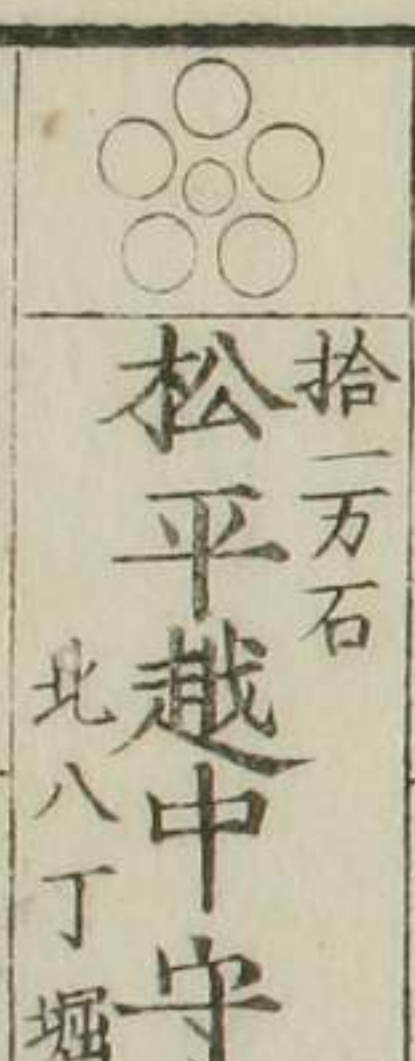 拾一万石
松平越中守
北八丁堀